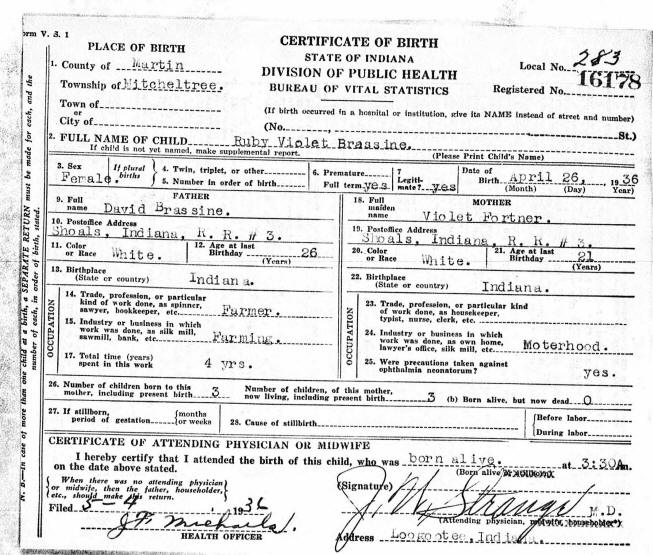 Form V. S. 1
CERTIFICATE OF BIRTH
STATE OF INDIANA
DIVISION OF PUBLIC HEALTH
BUREAU OF VITAL STATISTICS
Local No. 283
Registered No. 16178
PLACE OF BIRTH
1. County of Martin
Township of Mitcheltree.
Town of
or
City of
(If birth occurred in a hospital or institution, give its NAME instead of street and number)
(No. , St.)
2. FULL NAME OF CHILD Ruby Violet Brassine.
If child is not yet named, make supplemental report.
(Please Print Child's Name)
3. Sex Female.
If plural births
4. Twin, triplet, or other
5. Number in order of birth
6. Premature
Full term yes
7 Legitimate? yes
Date of Birth April 26, 1936
(Month) (Day) Year
FATHER
9. Full name David Brassine.
10. Postoffice Address
Shoals, Indiana, R. R. # 3.
11. Color or Race White.
12. Age at last Birthday 26
(Years)
13. Birthplace (State or country) Indiana.
OCCUPATION
14. Trade, profession, or particular kind of work done, as spinner, sawyer, bookkeeper, etc. Farmer.
15. Industry or business in which work was done, as silk mill, sawmill, bank, etc. Farming.
17. Total time (years) spent in this work 4 yrs.
MOTHER
18. Full maiden name Violet Fortner.
19. Postoffice Address
Shoals, Indiana, R. R. # 3.
20. Color or Race White.
21. Age at last Birthday 21
(Years)
22. Birthplace (State or country) Indiana.
OCCUPATION
23. Trade, profession, or particular kind of work done, as housekeeper, typist, nurse, clerk, etc.
24. Industry or business in which work was done, as own home, lawyer's office, silk mill, etc. Moterhood.
25. Were precautions taken against ophthalmia neonatorum? yes.
26. Number of children born to this mother, including present birth 3
Number of children, of this mother, now living, including present birth 3
(b) Born alive, but now dead 0
27. If stillborn, period of gestation {months or weeks
28. Cause of stillbirth
{Before labor
{During labor
CERTIFICATE OF ATTENDING PHYSICIAN OR MIDWIFE
I hereby certify that I attended the birth of this child, who was born alive. at 3:30Am.
on the date above stated.
(Born alive or stillborn)
{When there was no attending physician or midwife, then the father, householder, etc., should make this return.}
(Signature) J. W. Strange M.D.
(Attending physician, midwife, householder*)
Filed 5-4, 1936
J F Michaels.
HEALTH OFFICER
Address Loogootee, Indiana.
N. B.—In case of more than one child at a birth, a SEPARATE RETURN must be made for each, and the
number of each, in order of birth, stated.